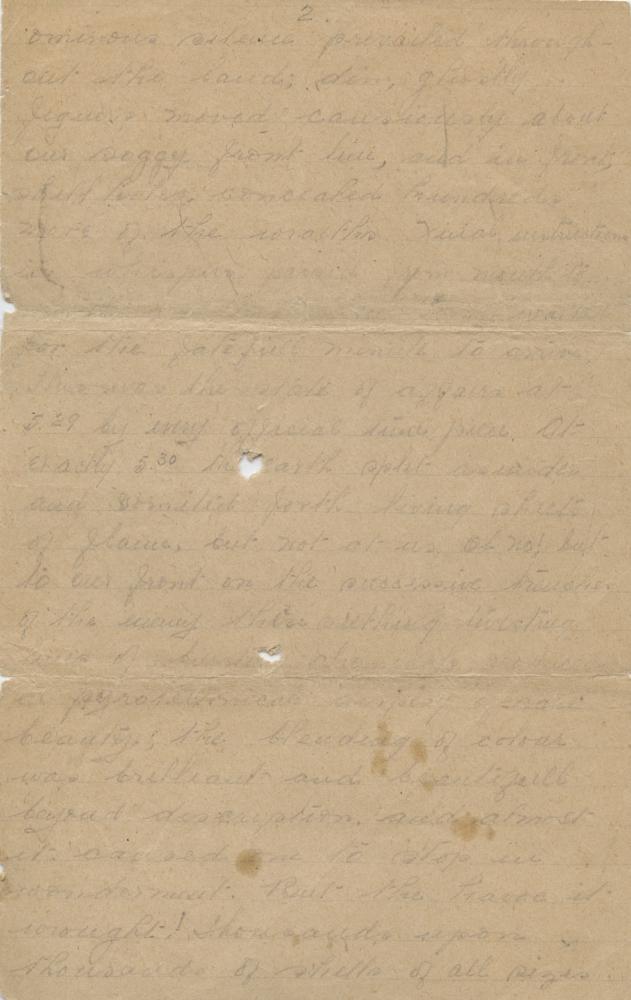 2.
ominous silence prevailed through-
out the land; dim, ghostly
figures moved cautiously about
our soggy front line, and in front,
shell holes concealed hundreds
more of the wraiths. Final instructions
in whispers passed from mouth to
waited
for the fatefull minute to arrive.
Thus was the state of affairs at
5.29 by my official time piece. At
exactly 5.30 the earth split asunder
and vomited forth living sheets
of flame, but not at us, oh no! but
to our front on the successive trenches
of the enemy. This seething twisting
of
a pyrotechnical display of rare
beauty; the blending of colour
was brilliant and beautifull
beyond description, and almost
it caused one to stop in
wonderment. But the havoc it
wrought! Thousands upon
thousands of shells of all sizes